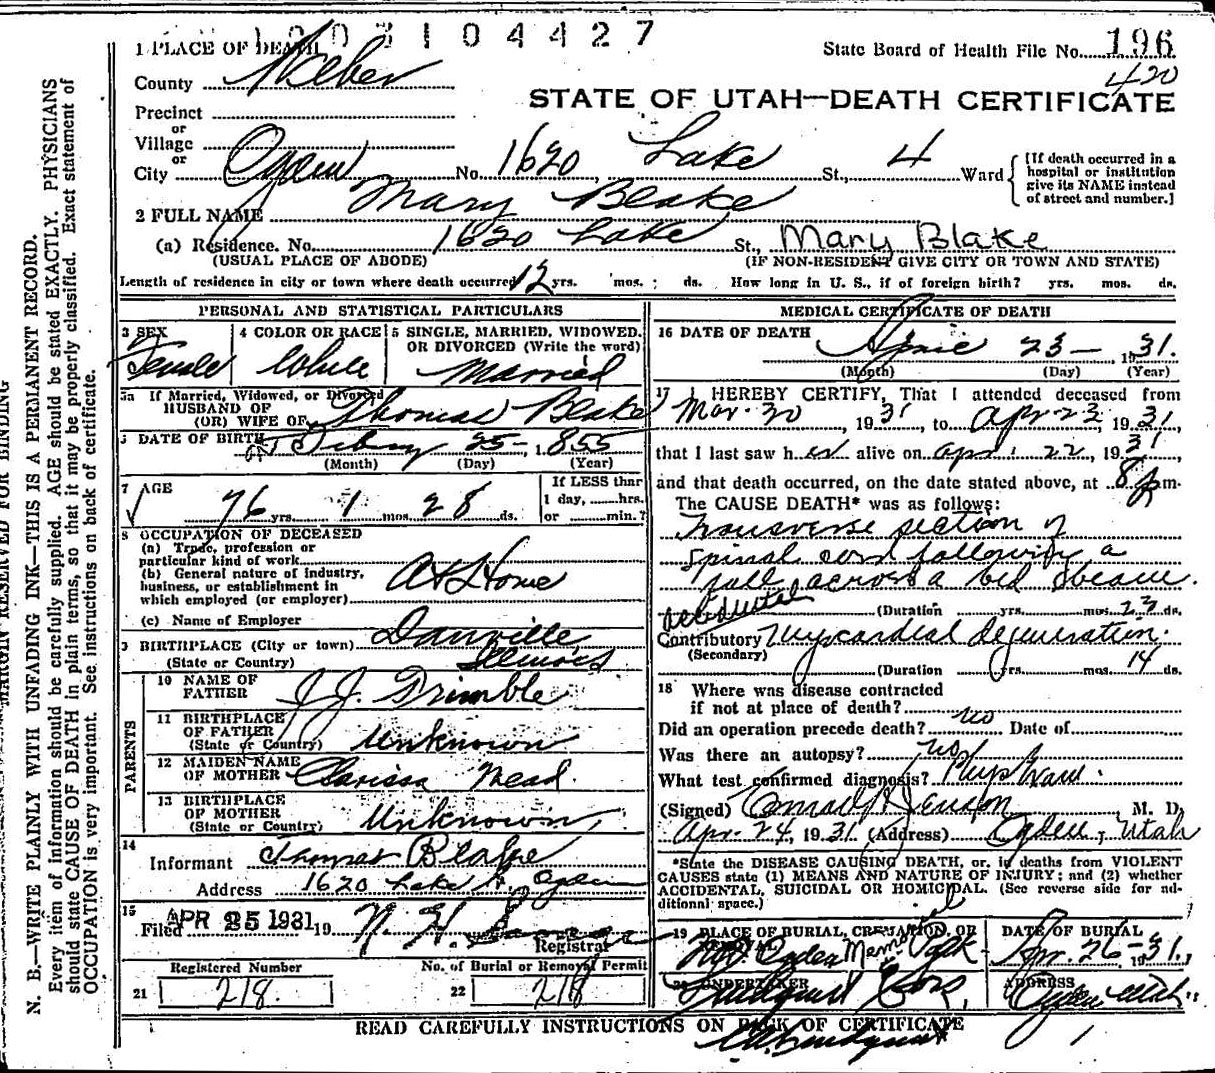 1003104427
1 PLACE OF DEATH
State Board of Health File No. 196
420
County Weber
STATE OF UTAH—DEATH CERTIFICATE
Precinct
or
Village
or
City Ogden No. 1620 Lake St., 4 Ward
[If death occurred in a
hospital or institution
give its NAME instead
of street and number.]
2 FULL NAME Mary Blake
(a) Residence. No. 1620 Lake St., Mary Blake
(USUAL PLACE OF ABODE) (IF NON-RESIDENT GIVE CITY OR TOWN AND STATE)
Length of residence in city or town where death occurred 12 yrs. mos. ds. How long in U. S., if of foreign birth? yrs. mos. ds.
PERSONAL AND STATISTICAL PARTICULARS
3 SEX Female
4 COLOR OR RACE White
5 SINGLE, MARRIED, WIDOWED,
OR DIVORCED (Write the word)
Married
5a If Married, Widowed, or Divorced
HUSBAND OF
(OR) WIFE OF Thomas Blake
6 DATE OF BIRTH Febry 25—, 1855
(Month) (Day) (Year)
7 AGE
76 yrs. 1 mos. 28 ds.
If LESS than
1 day, hrs.
or min.?
8 OCCUPATION OF DECEASED
(a) Trade, profession or
particular kind of work
(b) General nature of industry,
business, or establishment in
which employed (or employer)
At Home
(c) Name of Employer
9 BIRTHPLACE (City or town) Danville
(State or Country) Illinois
PARENTS
10 NAME OF
FATHER J.J. Trimble
11 BIRTHPLACE
OF FATHER
(State or Country) Unknown
12 MAIDEN NAME
OF MOTHER Clarissa Mead.
13 BIRTHPLACE
OF MOTHER
(State or Country) Unknown
14
Informant Thomas Blake
Address 1620 Lake St, Ogden
15
Filed APR 25 1931 19 N. H.
Registrar
Registered Number
21 218
No. of Burial or Removal Permit
22 218
MEDICAL CERTIFICATE OF DEATH
16 DATE OF DEATH April 23—, 1931.
(Month) (Day) (Year)
17 I HEREBY CERTIFY, That I attended deceased from
Mar. 20, 1931, to Apr. 23, 1931,
that I last saw her alive on Apr. 22, 1931
and that death occurred, on the date stated above, at 8 p m.
The CAUSE DEATH* was as follows:
Transverse section of
spinal cord following a
fall across a bed beam.
accidental
(Duration yrs. mos. 23 ds.
Contributory Myocardial Degeneration.
(Secondary)
(Duration yrs. mos. 14 ds.
18 Where was disease contracted
if not at place of death?
Did an operation precede death? no Date of
Was there an autopsy? no
What test confirmed diagnosis? Phys Exam.
(Signed) Conrad H Jenson M. D.
Apr. 24, 1931 (Address) Ogden, Utah
*State the DISEASE CAUSING DEATH, or, in deaths from VIOLENT
CAUSES state (1) MEANS AND NATURE OF INJURY; and (2) whether
ACCIDENTAL, SUICIDAL OR HOMICIDAL. (See reverse side for ad-
ditional space.)
19 PLACE OF BURIAL, CREMATION, OR
REMOVAL
Ogden Memorial Park
DATE OF BURIAL
Apr. 26—1931.
20 UNDERTAKER
Lindquist & Sons,
ADDRESS
Ogden Utah
READ CAREFULLY INSTRUCTIONS ON BACK OF CERTIFICATE
MARGIN RESERVED FOR BINDING
N. B.—WRITE PLAINLY WITH UNFADING INK—THIS IS A PERMANENT RECORD.
Every item of information should be carefully supplied. AGE should be stated EXACTLY. PHYSICIANS
should state CAUSE OF DEATH in plain terms, so that it may be properly classified. Exact statement of
OCCUPATION is very important. See instructions on back of certificate.